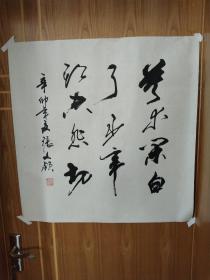 莫等闲白
了少年
头空悲切
辛卯年夏张文